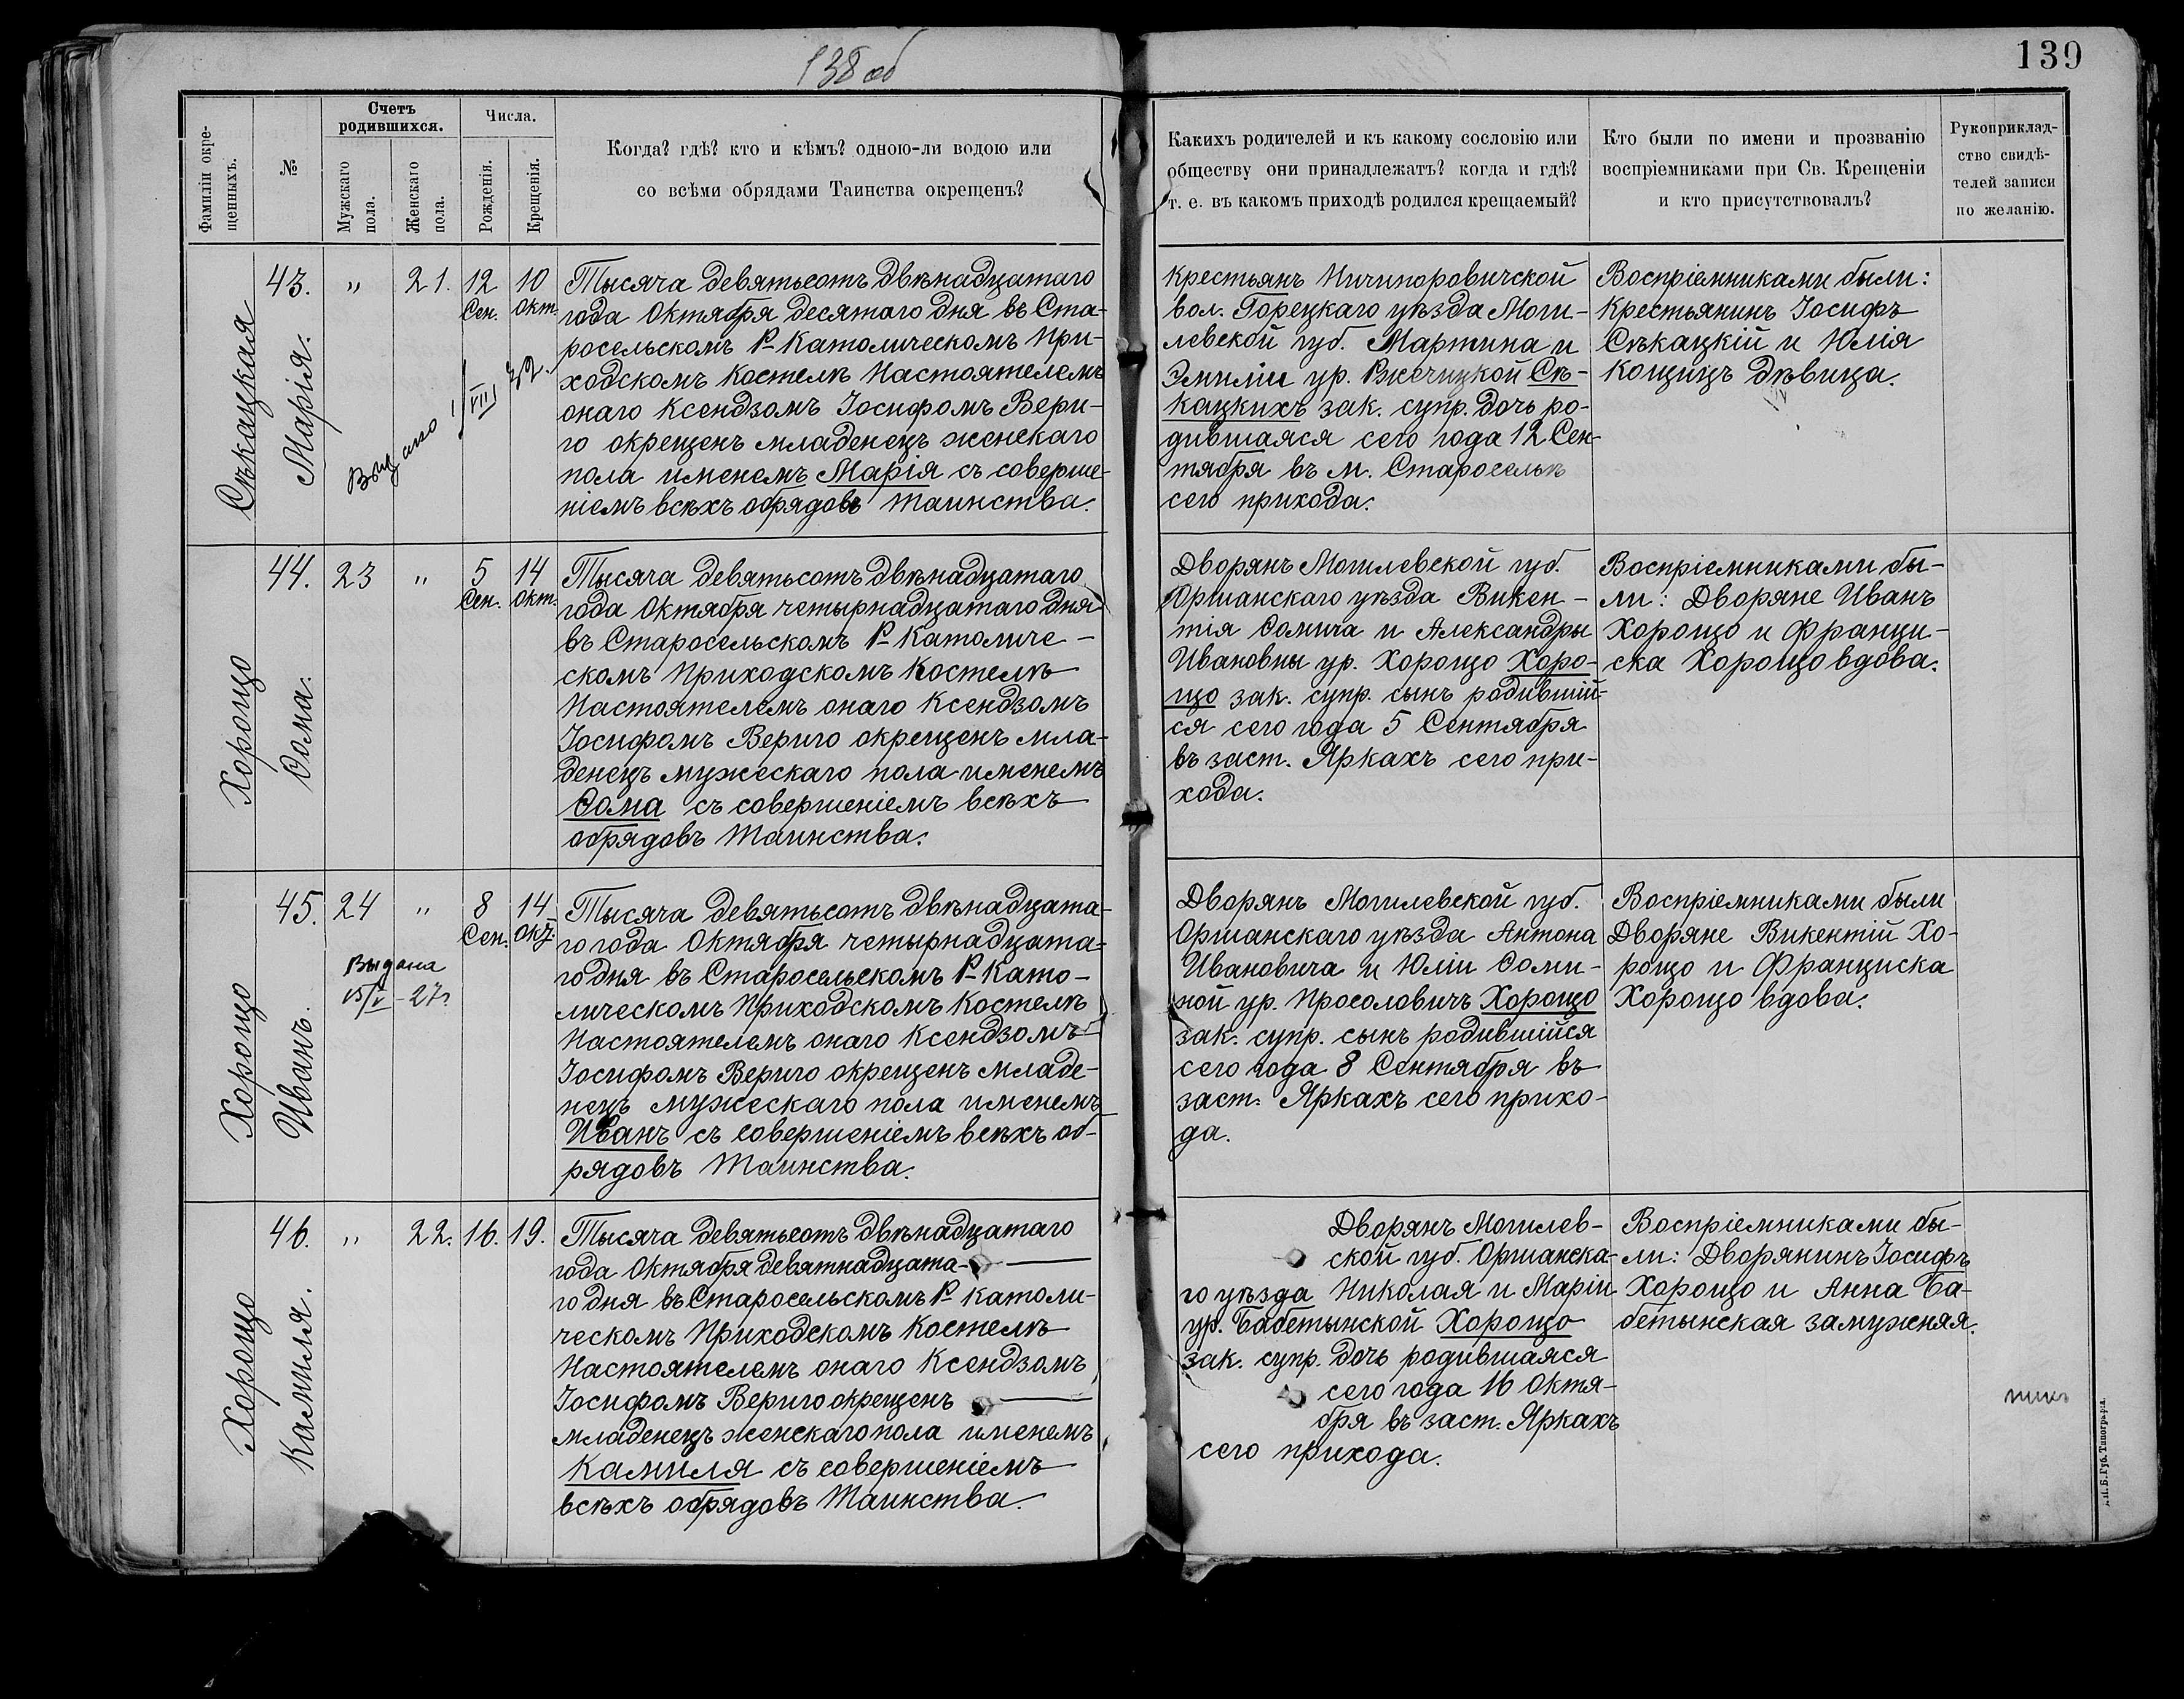 138 об
139
Фамиліи окре-
щенныхъ.
№
Счетъ
родившихся.
Мужскаго
пола.
Женскаго
пола.
Числа.
Рожденія.
Крещенія.
Когда? гдѣ? кто и кѣмъ? одною-ли водою или
со всѣми обрядами Таинства окрещенъ?
Какихъ родителей и къ какому сословію или
обществу они принадлежатъ? когда и гдѣ?
т. е. въ какомъ приходѣ родился крещаемый?
Кто были по имени и прозванію
воспріемниками при Св. Крещеніи
и кто присутствовалъ?
Рукоприклад-
ство свидѣ-
телей записи
по желанію.
Сѣкацкая
Марія.
43.
"
21.
12
Сен.
10
Окт.
Выдано 1/VIII 32.
Тысяча девятьсотъ двѣнадцатаго
года Октября десятаго дня въ Ста-
росельскомъ Р-Католическомъ При-
ходскомъ Костелѣ Настоятелемъ
онаго Ксендзомъ Іосифомъ Вери-
го окрещенъ младенецъ женскаго
пола именемъ Марія съ соверше-
ніемъ всѣхъ обрядовъ Таинства.
Крестьянъ Ничипоровичской
вол. Горецкаго уѣзда Моги-
левской губ. Мартина и
Эмиліи ур. Ржечицкой Сѣ-
кацкихъ зак. супр. дочь ро-
дившаяся сего года 12 Сен-
тября въ м. Старосельѣ
сего прихода.
Воспріемниками были:
Крестьянинъ Іосифъ
Сѣкацкій и Юлія
Кощицъ дѣвица.
Хорощо
Ѳома.
44.
23
"
5
Сен.
14
Окт.
Тысяча девятьсотъ двѣнадцатаго
года Октября четырнадцатаго дня
въ Старосельскомъ Р-Католиче-
скомъ Приходскомъ Костелѣ
Настоятелемъ онаго Ксендзомъ
Іосифомъ Вериго окрещенъ мла-
денецъ мужескаго пола именемъ
Ѳома съ совершеніемъ всѣхъ
обрядовъ Таинства.
Дворянъ Могилевской губ.
Оршанскаго уѣзда Викен-
тія Ѳомича и Александры
Ивановны ур. Хорощо Хоро-
що зак. супр. сынъ родившій-
ся сего года 5 Сентября
въ заст. Яркахъ сего при-
хода.
Воспріемниками бы-
ли: Дворяне Иванъ
Хорощо и Францы-
ска Хорощо вдова.
Хорощо
Иванъ.
45.
24
"
8
Сен.
14
Окт.
Выдана
15/V-27г.
Тысяча девятьсотъ двѣнадцата-
го года Октября четырнадцата-
го дня въ Старосельскомъ Р-Като-
лическомъ Приходскомъ Костелѣ
Настоятелемъ онаго Ксендзомъ
Іосифомъ Вериго окрещенъ младе-
нецъ мужескаго пола именемъ
Иванъ съ совершеніемъ всѣхъ об-
рядовъ Таинства.
Дворянъ Могилевской губ.
Оршанскаго уѣзда Антона
Ивановича и Юліи Ѳоми-
ной ур. Просоловичъ Хорощо
зак. супр. сынъ родившійся
сего года 8 Сентября въ
заст. Яркахъ сего прихо-
да.
Воспріемниками были
Дворяне Викентій Хо-
рощо и Франциска
Хорощо вдова.
Хорощо
Камиля.
46.
"
22.
16.
19.
Тысяча девятьсотъ двѣнадцатаго
года Октября девятнадцата-
го дня въ Старосельскомъ Р-Католи-
ческомъ Приходскомъ Костелѣ
Настоятелемъ онаго Ксендзомъ
Іосифомъ Вериго окрещенъ
младенецъ женскаго пола именемъ
Камиля съ совершеніемъ
всѣхъ обрядовъ Таинства.
Дворянъ Могилев-
ской губ. Оршанска-
го уѣзда Николая и Маріи
ур. Бабетынской Хорощо
зак. супр. дочь родившаяся
сего года 16 Октя-
бря въ заст. Яркахъ
сего прихода.
Воспріемниками бы-
ли: Дворянинъ Іосифъ
Хорощо и Анна Ба-
бетынская замужняя.
Губ. Типографія.